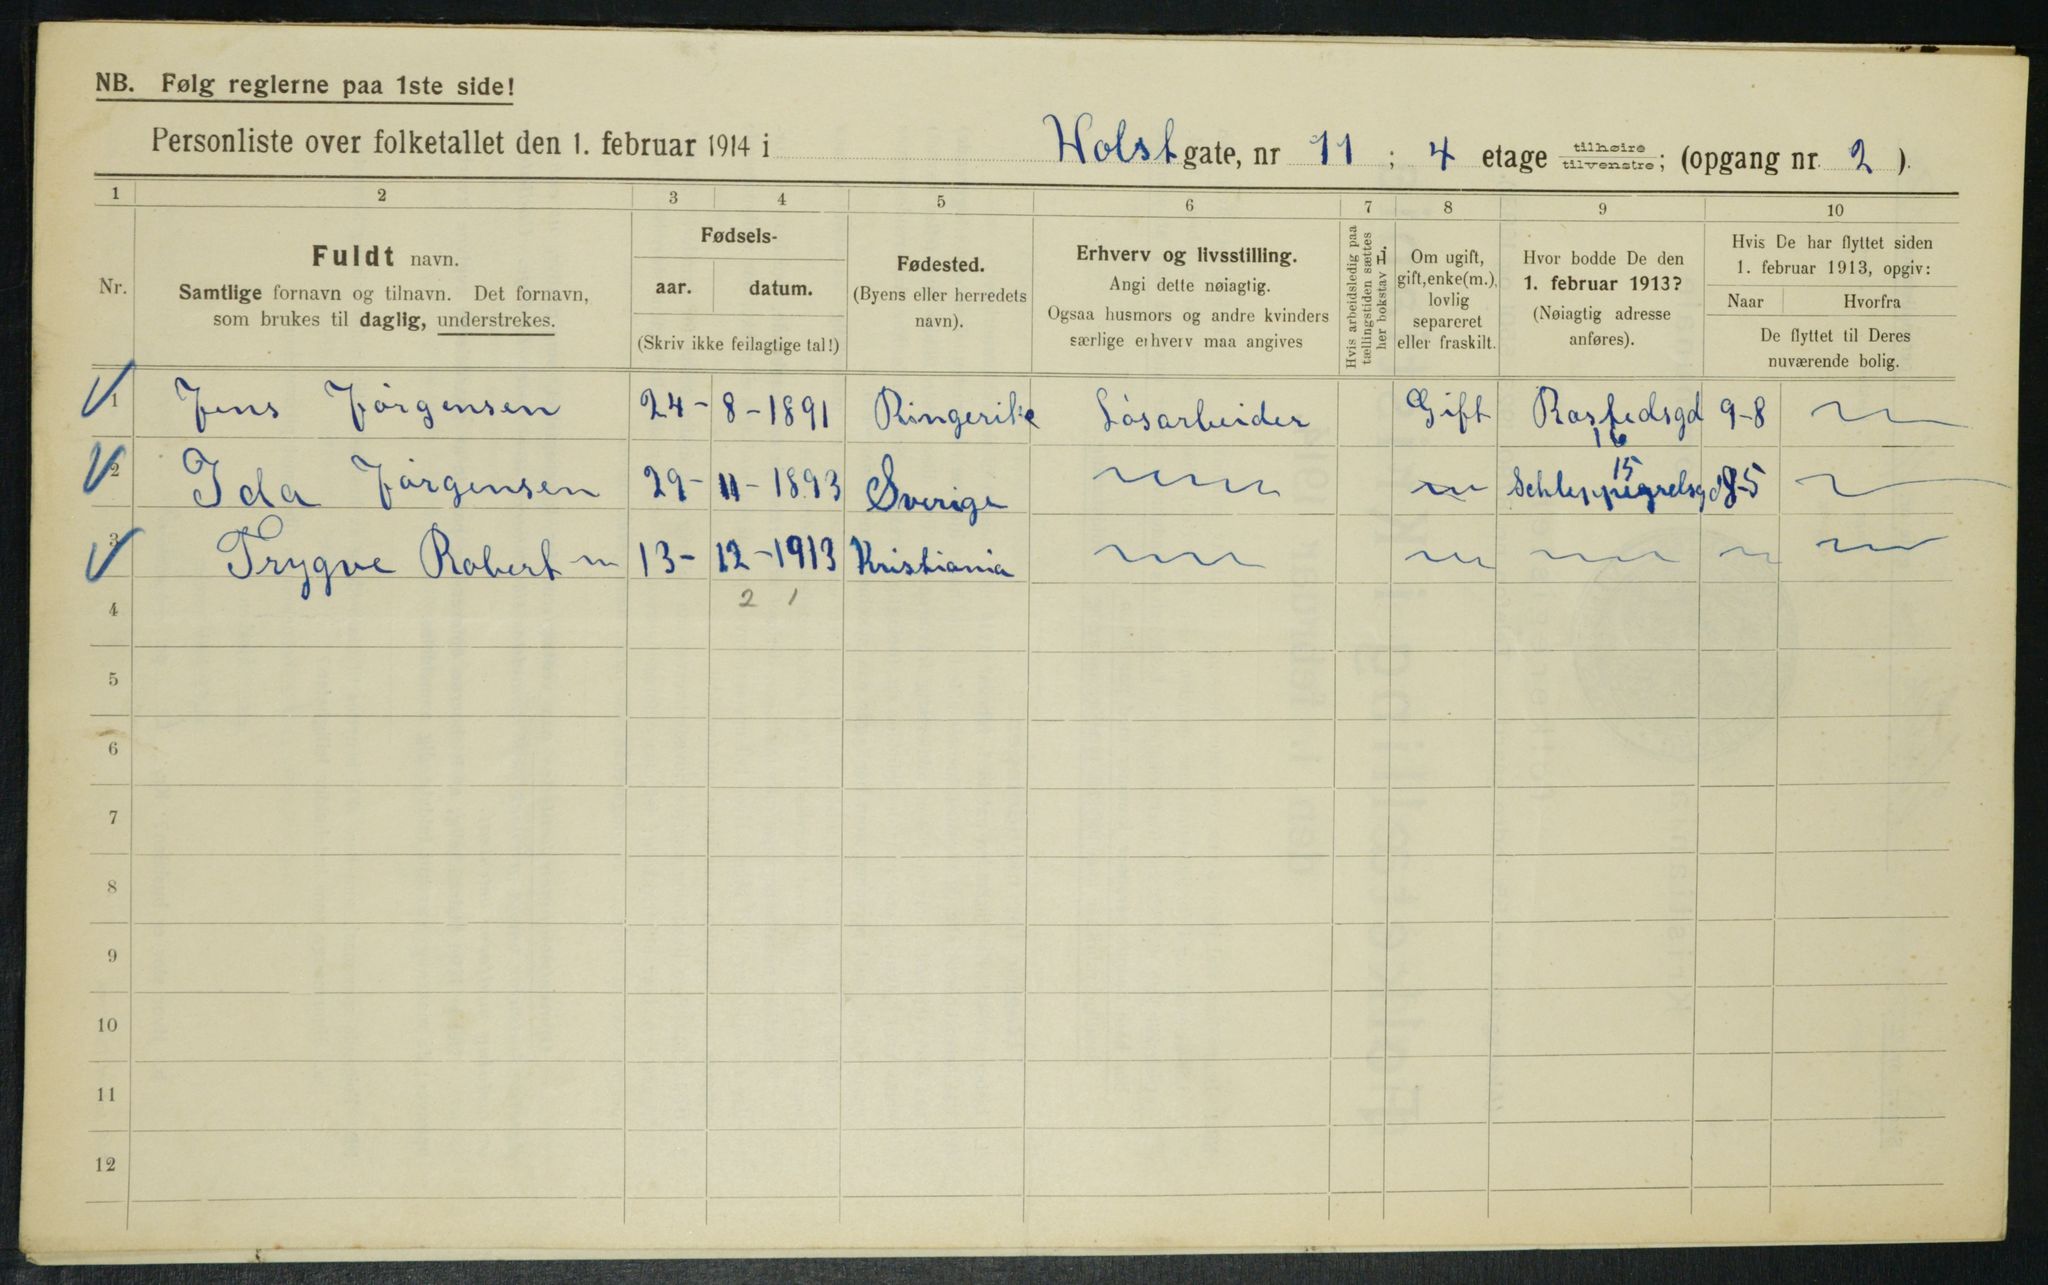 NB. Følg reglerne paa 1ste side!
Personliste over folketallet den 1. februar 1914 i Holst gate, nr 11 ; 4 etage tilhøire/tilvenstre; (opgang nr 2 ).
1 2 3 4 5 6 7 8 9 10
Nr.
Fuldt navn.
Samtlige fornavn og tilnavn. Det fornavn,
som brukes til daglig, understrekes.
Fødsels-
aar. datum.
(Skriv ikke feilagtige tal!)
Fødested.
(Byens eller herredets
navn).
Erhverv og livsstilling.
Angi dette nøiagtig.
Ogsaa husmors og andre kvinders
særlige erhverv maa angives
Hvis arbeidsledig paa
tællingstiden sættes
her bokstav L.
Om ugift,
gift, enke(m.),
lovlig
separeret
eller fraskilt.
Hvor bodde De den
1. februar 1913?
(Nøiagtig adresse
anføres).
Hvis De har flyttet siden
1. februar 1913, opgiv:
Naar Hvorfra
De flyttet til Deres
nuværende bolig.
1 Jens Jörgensen 24-8-1891 Ringerike Lösarbeider Gift Rastedsgd 16 9-8
2 Ida Jörgensen 29-11-1893 Sverige Schleppegrelsgd 15 -5
3 Trygve Robert 13-12-1913 Kristiania
2 1
4
5
6
7
8
9
10
11
12